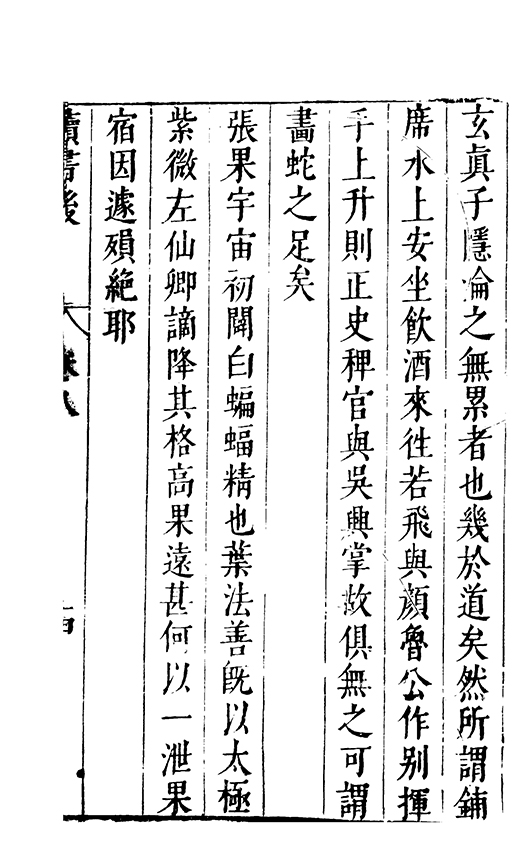 玄眞子隱淪之無累者也幾於道矣然所謂鋪
席水上安坐飮酒來徃若飛與顔魯公作别揮
手上升則正史稗官與吳興掌故俱無之可謂
畵蛇之足矣
張果宇宙初闢白蝙蝠精也葉法善旣以太極
紫微左仙卿謫降其格高果遠甚何以一泄果
宿因遽殞絶耶
讀書後
卷八
十四